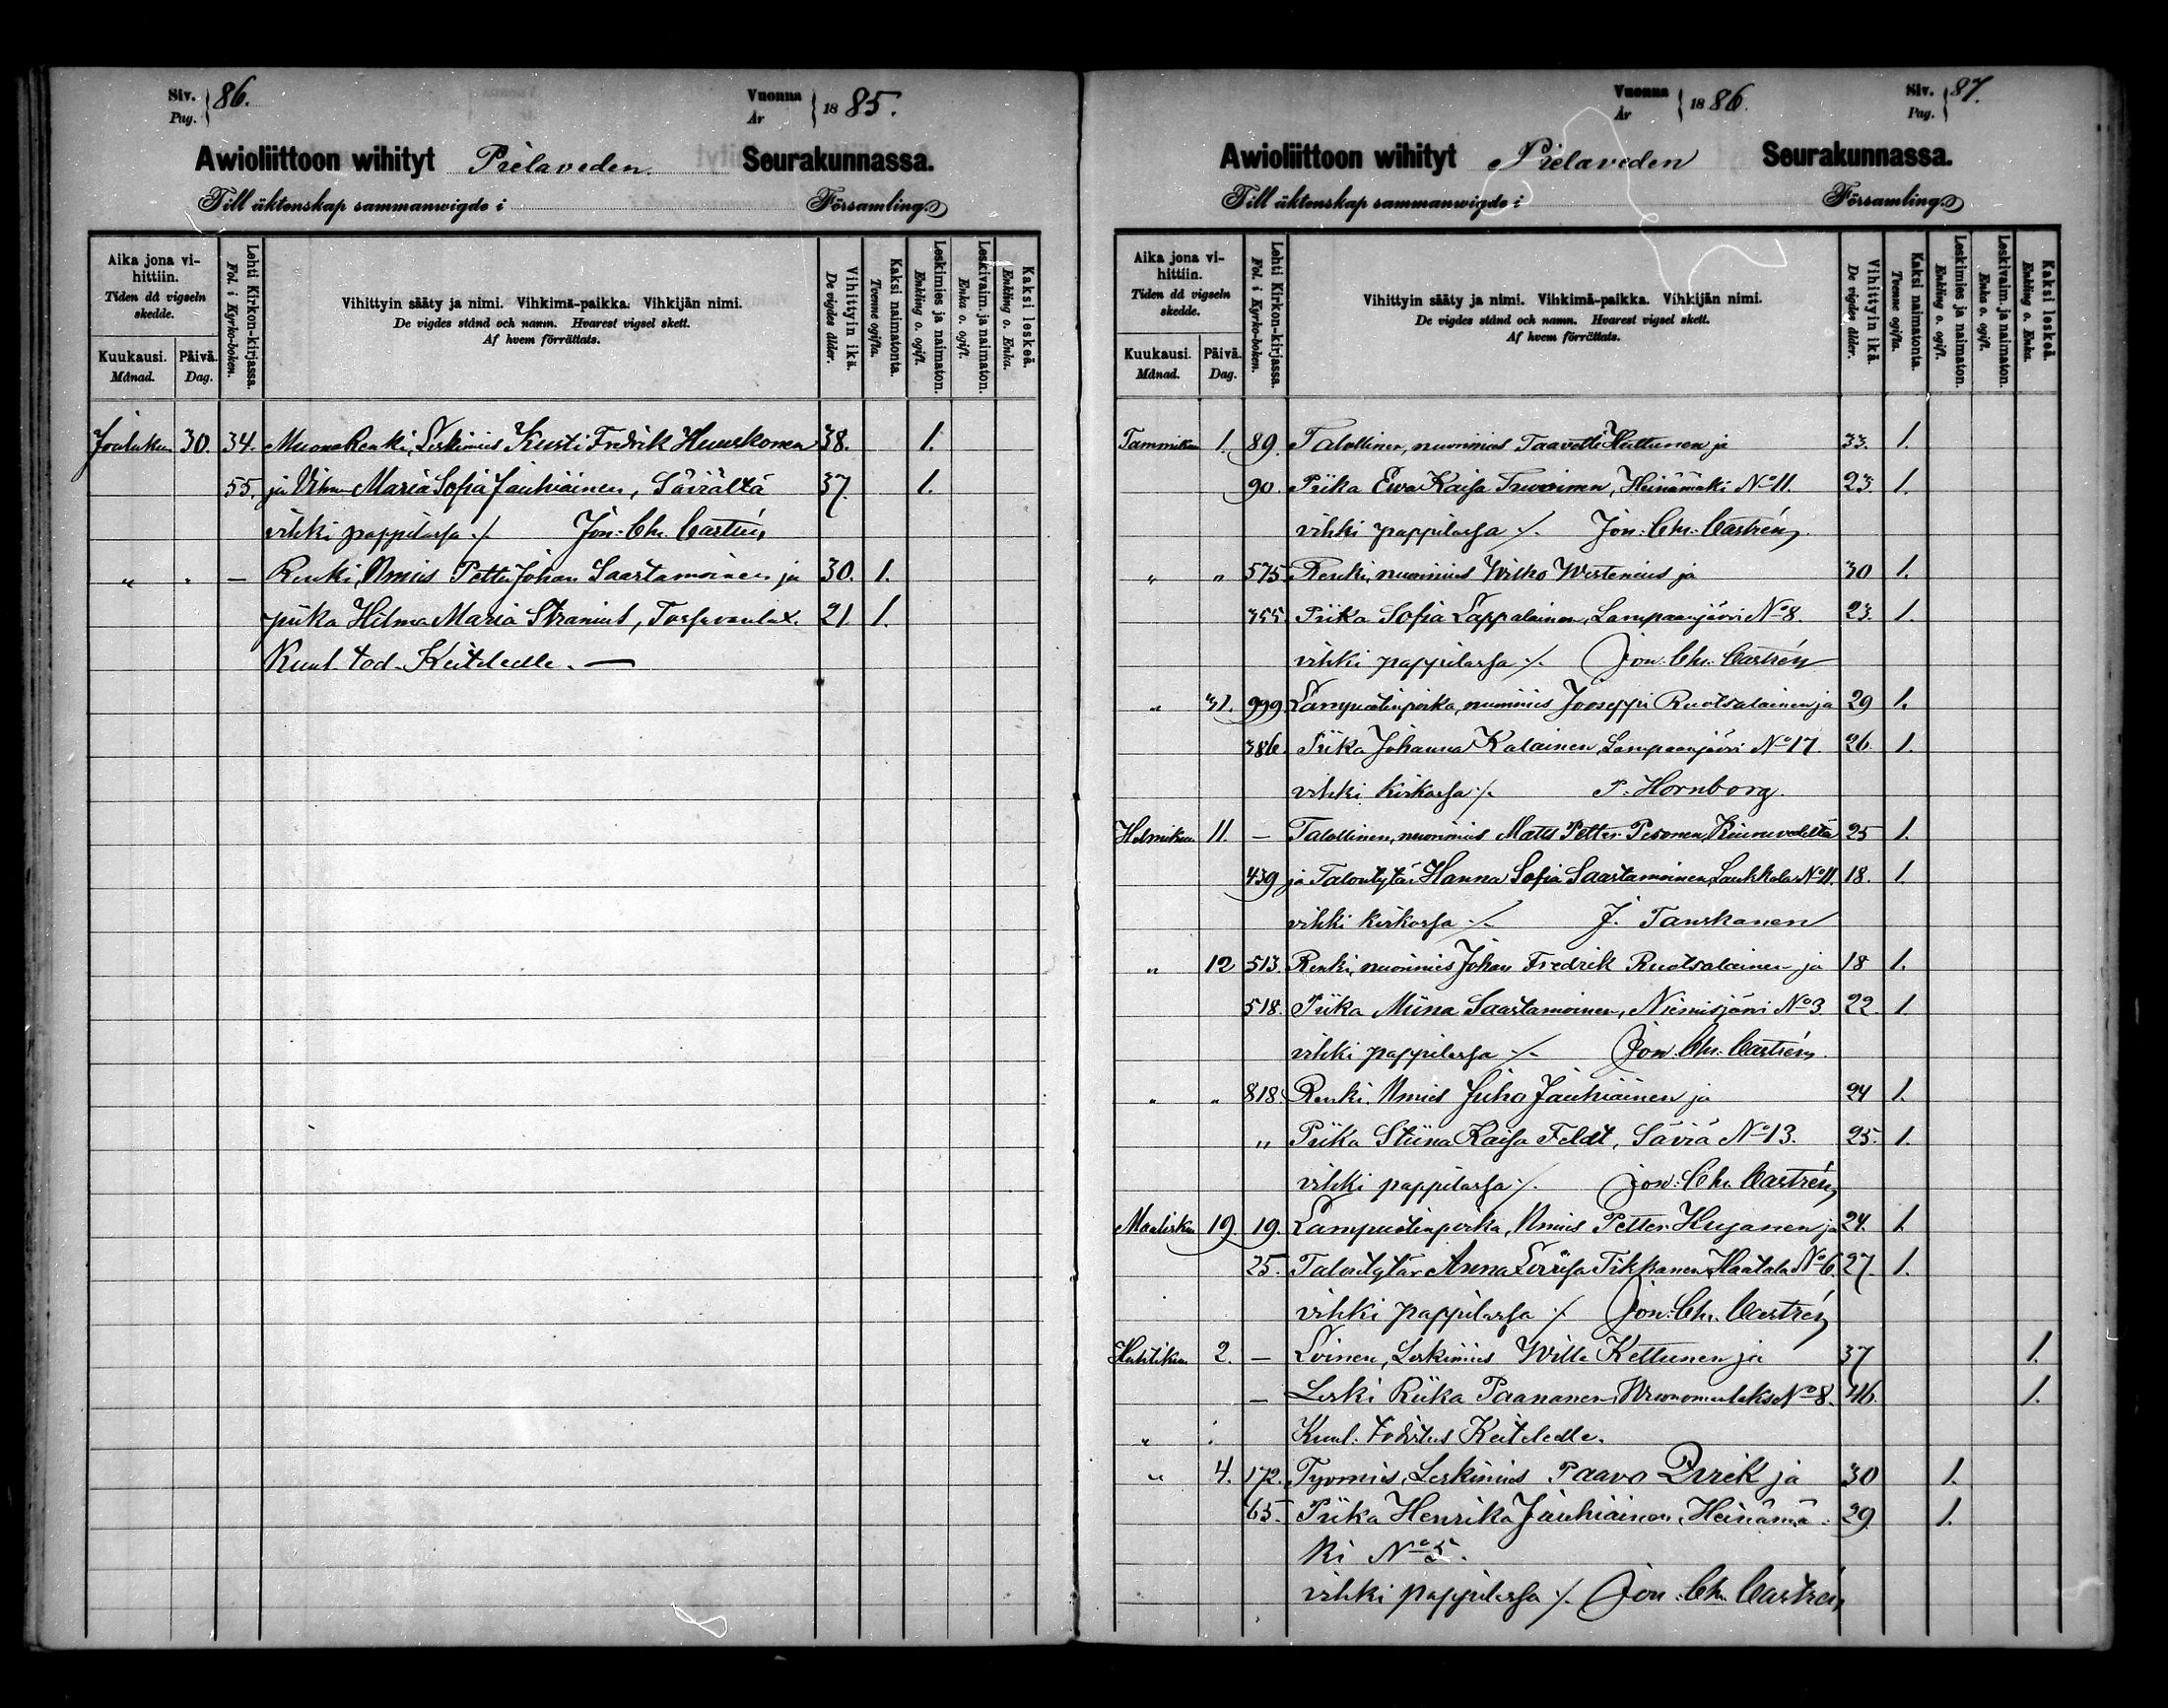 Siv. Pag. } 86.
Vuonna År } 1885.
Awioliittoon wihityt Pielaveden. Seurakunnassa.
Till äktenskap sammanwigde i Församling.
Aika jona vihittiin. Tiden då vigseln skedde.
Kuukausi. Månad.
Päivä. Dag.
Lehti Kirkon-kirjassa. Fol. i Kyrko-boken.
Vihittyin sääty ja nimi. Vihkimä-paikka. Vihkijän nimi.
De vigdes stånd och namn. Hvarest vigsel skett.
Af hvem förrättats.
Vihittyin ikä. De vigdes ålder.
Kaksi naimatonta. Tvenne ogifta.
Leskimies ja naimaton. Enkling o. ogift.
Leskivaim. ja naimaton. Enka o. ogift.
Kaksi leskeä. Enkling o. Enka.
Jouluku 30. 34. MuonaRenki, Leskimies Kusti Fredrik Huuskonen 38. 1.
55. ja Maria Sofia Jauhiainen, Säviältä 37. 1.
vihki pappilassa ./. Jon. Chr. Castrén,
" . — Renki, Nmies Petter Johan Saastamoinen ja 30. 1.
piika Hilma Maria Stranius, 21. 1.
Kuul. tod. Keiteleelle. —
Vuonna År } 1886.
Siv. Pag. } 87.
Awioliittoon wihityt Pielaveden Seurakunnassa.
Till äktenskap sammanwigde i Församling.
Aika jona vihittiin. Tiden då vigseln skedde.
Kuukausi. Månad.
Päivä. Dag.
Lehti Kirkon-kirjassa. Fol. i Kyrko-boken.
Vihittyin sääty ja nimi. Vihkimä-paikka. Vihkijän nimi.
De vigdes stånd och namn. Hvarest vigsel skett.
Af hvem förrättats.
Vihittyin ikä. De vigdes ålder.
Kaksi naimatonta. Tvenne ogifta.
Leskimies ja naimaton. Enkling o. ogift.
Leskivaim. ja naimaton. Enka o. ogift.
Kaksi leskeä. Enkling o. Enka.
Tammikuu 1. 89. Talollinen, nuorimies Taavetti Huttunen ja 33. 1.
90. Piika Ewa Kaisa Heinämäki No 11. 23. 1.
vihki pappilassa ./. Jon. Chr. Castrén,
" " 575 Renki, nuorimies Wilho Westenius ja 30 1.
355. Piika Sofia Lappalainen, Lampaanjärvi No 8. 23. 1.
vihki pappilassa ./. Jon. Chr. Castrén
" 31. 999. Lampuotinpoika, nuorimies Jooseppi Ruotsalainen ja 29 1.
386. Piika Johanna Kalainen, Lampaanjärvi No 17. 26. 1.
vihki kirkossa ./. P. Hornborg.
Helmikuu 11. — Talollinen, nuorimies Matts Petter Pesonen, Kiuruvedeltä 25 1.
439 ja Talontytär Hanna Sofia Saastamoinen, Laukkala No 11. 18. 1.
vihki kirkossa ./. J. Tanskanen
" 12 513. Renki, nuorimies Johan Fredrik Ruotsalainen ja 18 1.
518. Piika Miina Saastamoinen, Niemisjärvi No 3 22. 1.
vihki pappilassa ./. Jon. Chr. Castrén,
" " 818. Renki, Nmies Juho Jauhiainen ja 24 1.
" Piika Stiina Kaisa Feldt, Säviä No 13. 25. 1.
vihki pappilassa ./. Jon. Chr. Castrén,
Maalisku 19. 19. Lampuotinpoika, Nmies Petter Hujanen ja 24. 1.
25. Talontytär Anna Lovisa Tikkanen, Haatala No 6. 27. 1.
vihki pappilassa ./. Jon. Chr. Castrén,
Huhtikuu 2. — Loinen, Leskimies Wille Kettunen ja 37 1.
— Leski Riika Paananen, No 8. 46. 1.
" . Kuul. todistus Keiteleelle.
" 4. 172. Työmies, Leskimies Paavo ja 30 1.
65. Piika Henrika Jauhiainen, Heinämä- 29 1.
ki No 5.
vihki pappilassa ./. Jon. Chr. Castrén,